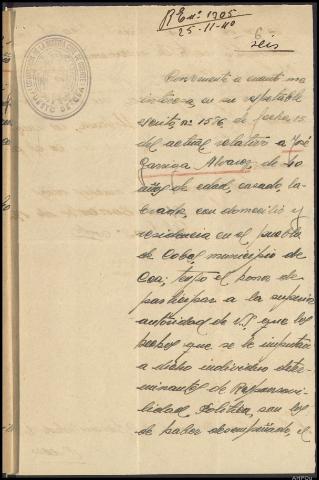 R.E. nº 1205
25-11-40
6
seis
PUESTO DE COA
Conforme a cuanto me
interesa en su respetable
escrito nº 1586 de fecha 15
del actual relativo a José
Garriga Alvarez, de 40
años de edad, casado, la-
brador, con domicilio y
residencia en el pueblo
de municipio de
Coa; tengo el honor de
participar a la superior
autoridad de V.S. que los
cargos que se le imputan
a dicho individuo deter-
minantes de Responsabi-
lidad Política, son los
de haber desempeñado, el